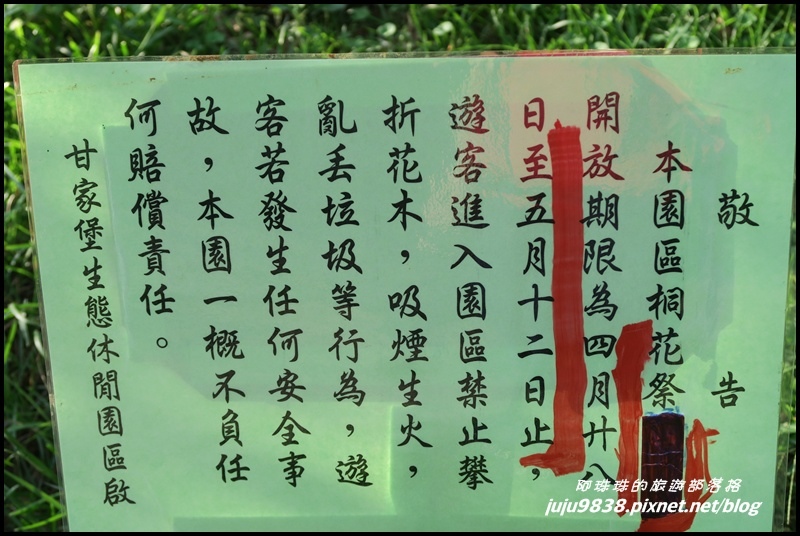 敬告
本園區桐花祭
開放期限為四月廿八
日至五月十二日止，
遊客進入園區禁止攀
折花木，吸煙生火，
亂丟垃圾等行為，遊
客若發生任何安全事
故，本園一概不負任
何賠償責任。
甘家堡生態休閒園區啟
珠珠的旅遊部落格
juju9838.pixnet.net/blog